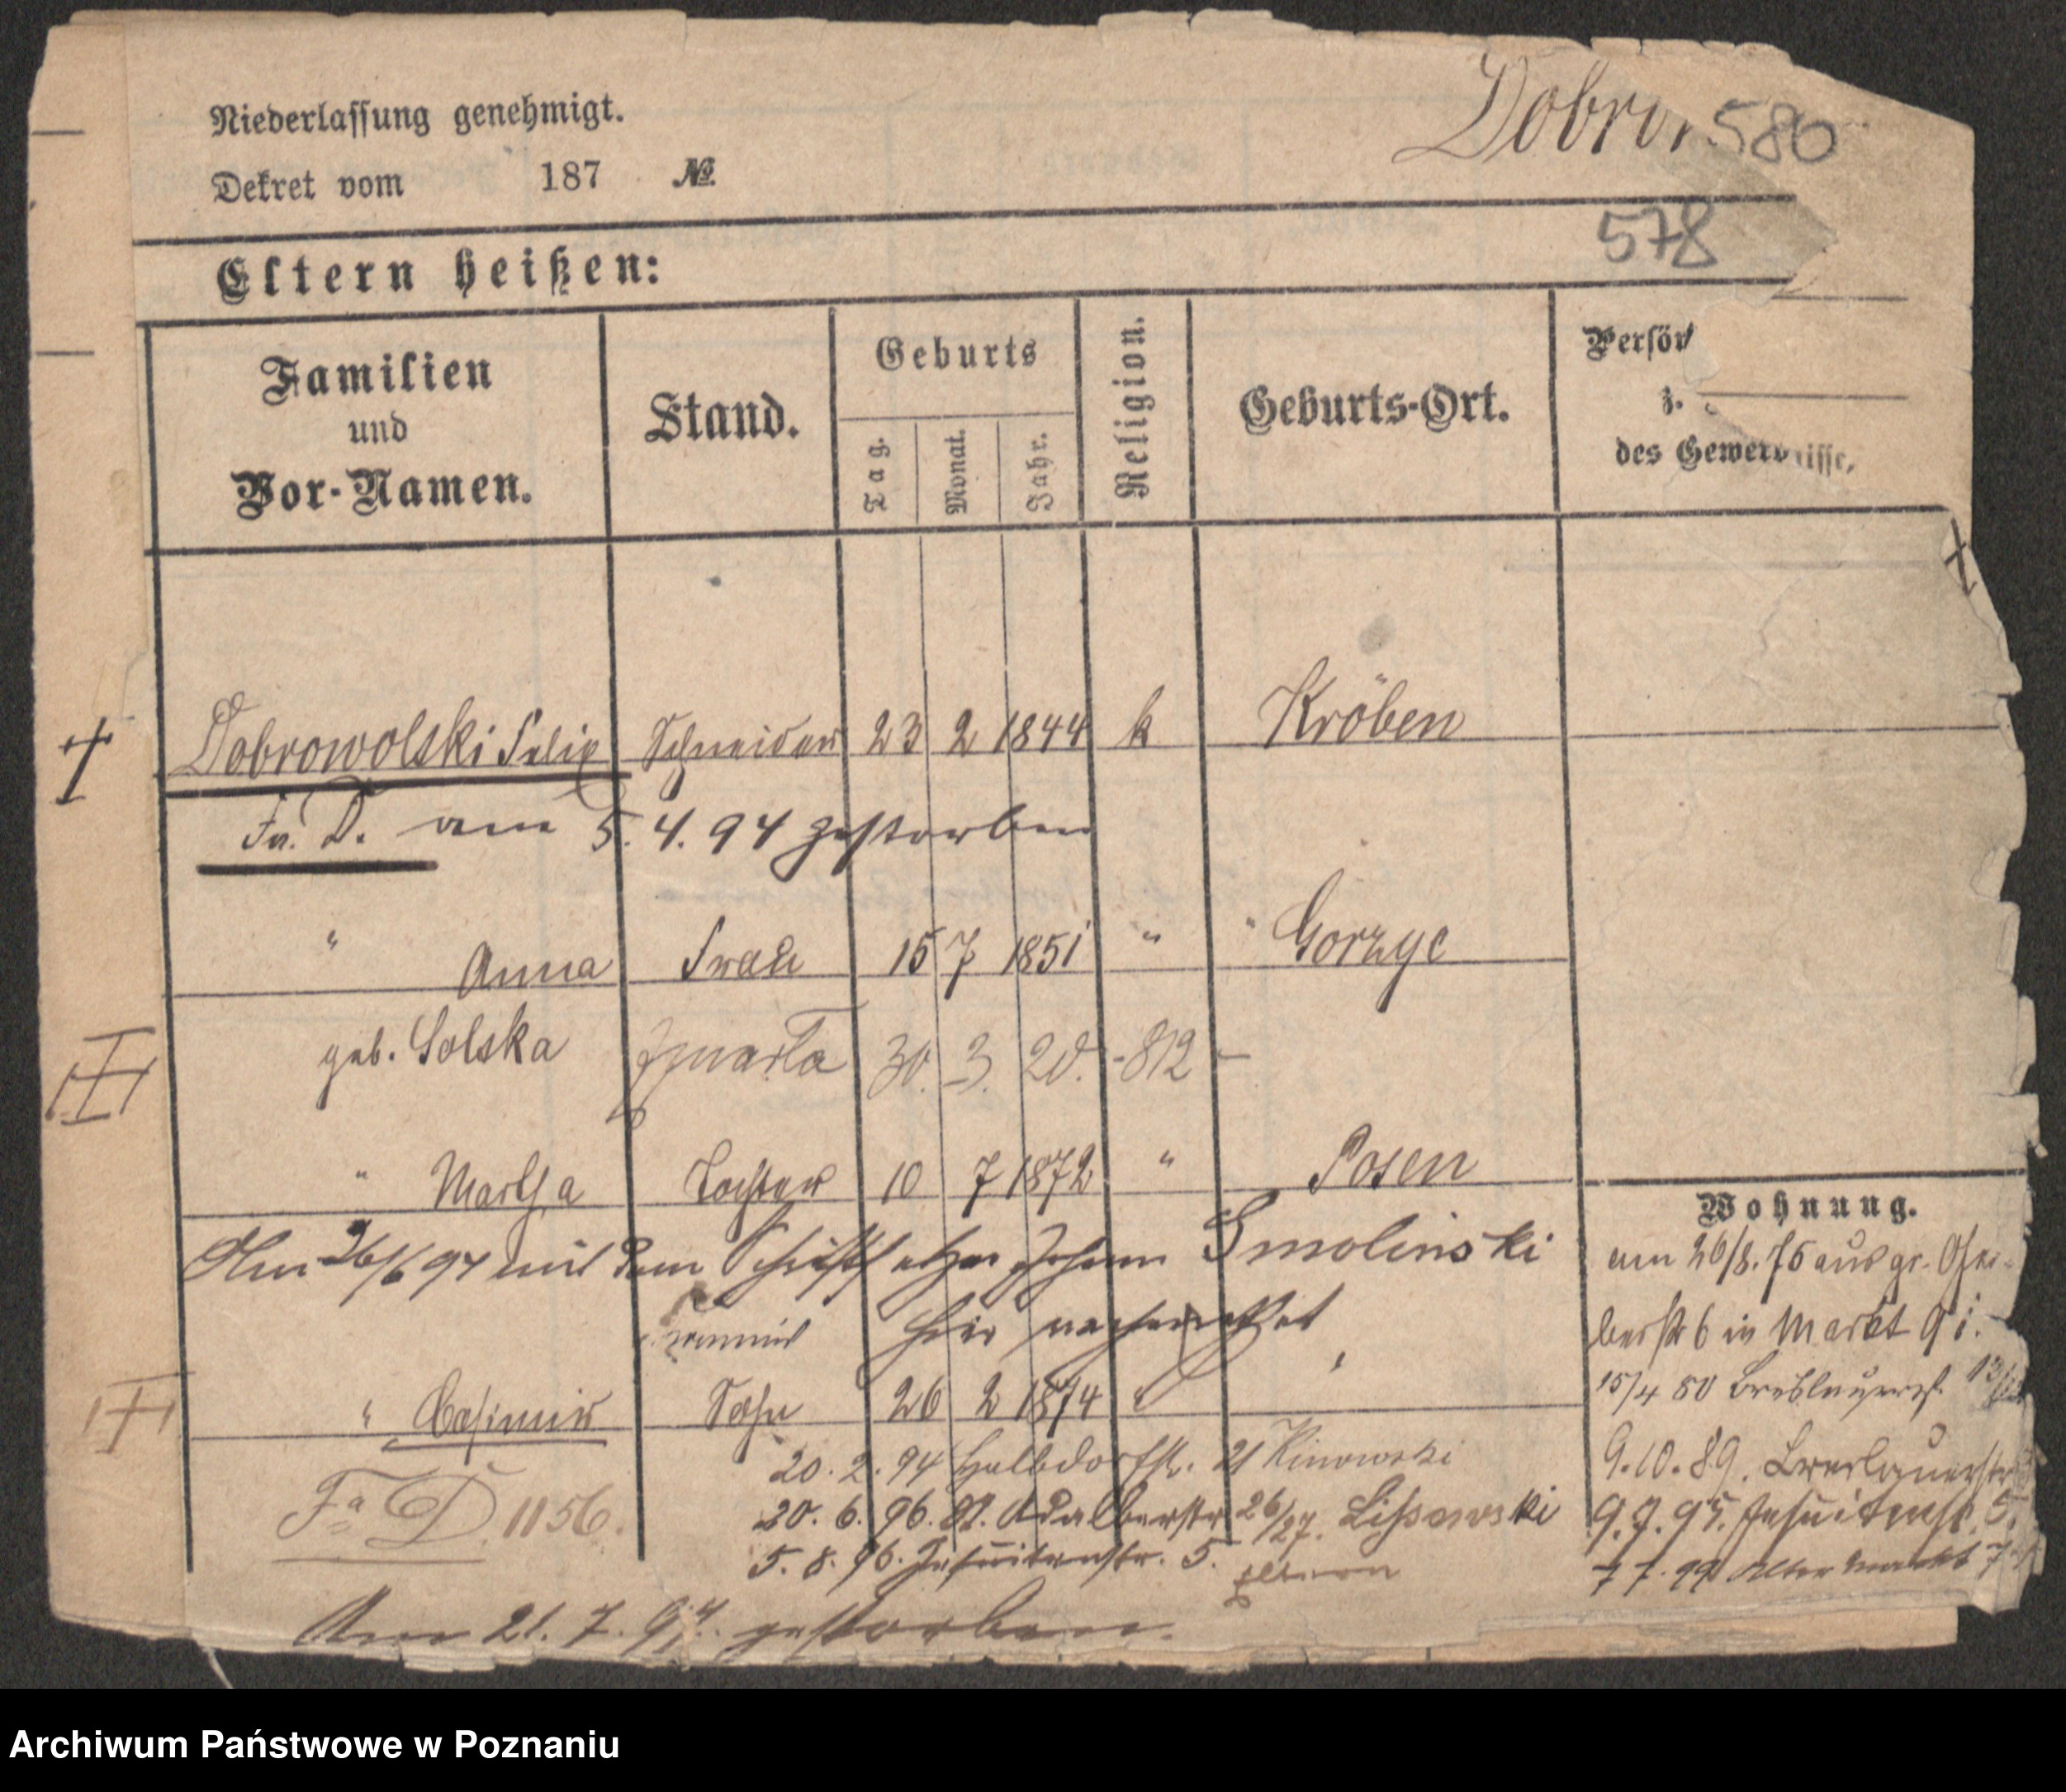 Niederlassung genehmigt.
Dekret vom 187 №
580
578
Eltern heißen:
Familien und Vor-Namen.
Stand.
Geburts
Tag.
Monat.
Jahr.
Religion.
Geburts-Ort.
Persön
z.
des Gewer nisse,
Dobrowolski Felix Schneider 23 2 1844 k Kröben
Fa. D. am 5. 4. 94 gestorben
" Anna Frau 15 7 1851 " Gorzyc
geb. Solska 30. 3. 20. - 812 -
" Martha Tochter 10 7 1872 " Posen
Am 26/6 94 mit dem Schriftsetzer Johann Smolinski
hier verheirathet
" Casimir Sohn 26 2 1874
20. 2. 94 Halbdorfstr. 21
Fa D 1156.
20. 6. 96. Adalbertstr 26/27.
5. 8. 96. Jesuitenstr. 5. Eltern
Am 21. 7. 97. gestorben.
Wohnung.
am 26/8. 75 aus gr. Ger-
berstr 6 in Markt 91.
15/4 80 Breslauerstr.
9. 10. 89. Breslauerstr
9. 7. 95. Jesuitenstr. 5.
7 7. 99 Alter Markt 7
Archiwum Państwowe w Poznaniu